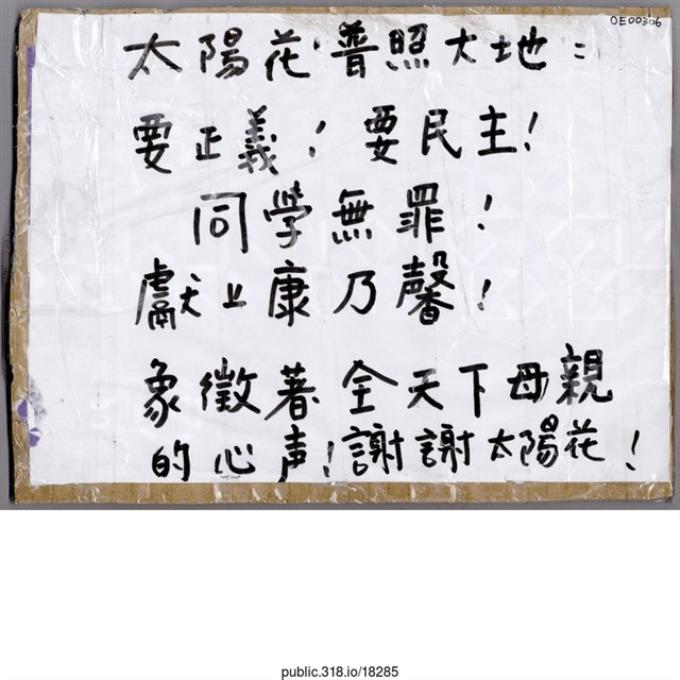 OE00306
太陽花普照大地：
要正義！要民主！
同學無罪！
獻上康乃馨！
象徵著全天下母親
的心声！謝謝太陽花！
public.318.io/18285